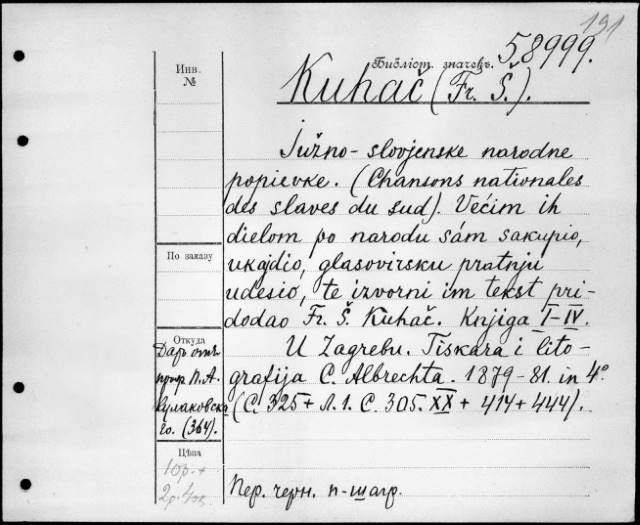 191
58999.
Инв.
№
Библіот. значекъ.
Kuhač (Fr. Š.).
Južno-slovjenske narodne
popievke. (Chansons nationales
des slaves du sud). Većim ih
dielom po narodu sám sakupio,
ukajdio, glasovirsku pratnju
udesio, te izvorni im tekst pri-
dodao Fr. Š. Kuhač. Knjiga I-IV.
U Zagrebu. Tiskara i lito-
grafija C. Albrechta. 1879-81. in 4°
(С. 325 + Л. 1. С. 305. XX + 414 + 444).
По заказу
Откуда
Даръ отъ
П. А.
Кулаковска
го. (364).
Цѣна
10р. +
2р.
Пер. черн. п-шагр.